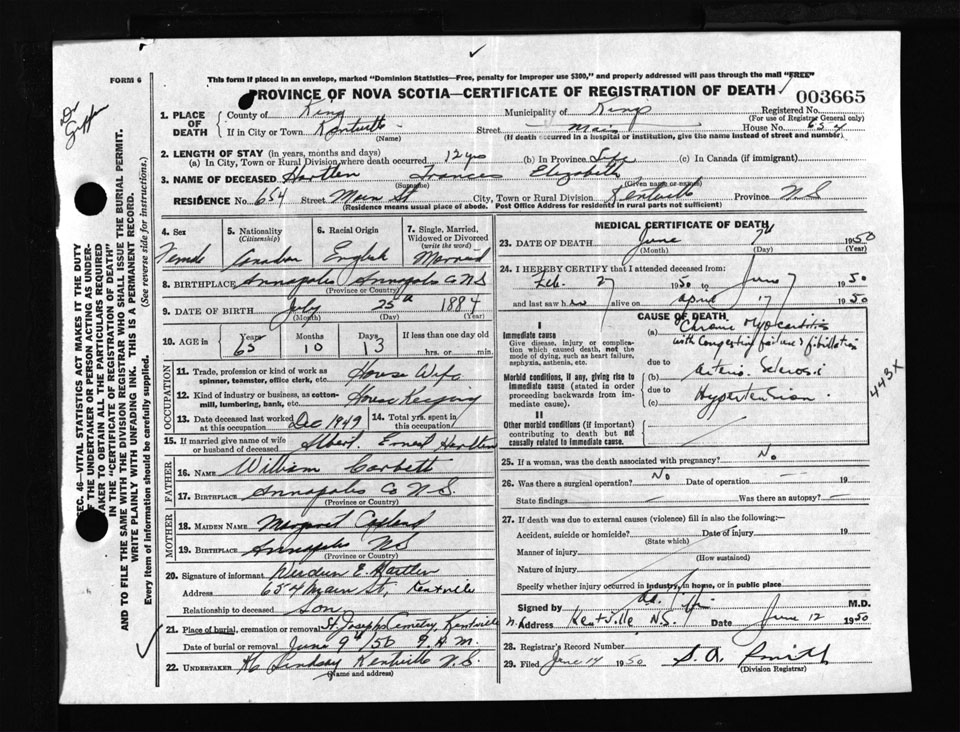 FORM 6
This form if placed in an envelope, marked "Dominion Statistics—Free, penalty for improper use $300," and properly addressed will pass through the mail "FREE"
PROVINCE OF NOVA SCOTIA—CERTIFICATE OF REGISTRATION OF DEATH
003665
1. PLACE OF DEATH
County of Kings
Municipality of Kings
Registered No.
(For use of Registrar General only)
If in City or Town Kentville
(Name)
Street Main
House No. 654
(If death occurred in a hospital or institution, give the name instead of street and number)
2. LENGTH OF STAY (in years, months and days)
(a) In City, Town or Rural Division where death occurred 12 yrs (b) In Province Life (c) In Canada (if immigrant)
3. NAME OF DECEASED Hartlen Frances Elizabeth
(Surname) (Given name or names)
RESIDENCE No. 654 Street Main St City, Town or Rural Division Kentville Province N.S
(Residence means usual place of abode. Post Office Address for residents in rural parts not sufficient)
4. Sex
Female
5. Nationality
(Citizenship)
Canadian
6. Racial Origin
English
7. Single, Married, Widowed or Divorced
(write the word)
Married
8. BIRTHPLACE Annapolis Annapolis Co NS
(Province or Country)
9. DATE OF BIRTH July 25th 1884
(Month) (Day) (Year)
10. AGE in
Years Months Days If less than one day old
65 10 13 hrs. or min.
OCCUPATION
11. Trade, profession or kind of work as spinner, teamster, office clerk, etc. House Wife
12. Kind of industry or business, as cotton-mill, lumbering, bank, etc. House Keeping
13. Date deceased last worked at this occupation Dec 1949
14. Total yrs. spent in this occupation
15. If married give name of wife or husband of deceased Albert Ernest Hartlen
FATHER
16. NAME William Corbett
17. BIRTHPLACE Annapolis Co N.S.
(Province or Country)
MOTHER
18. MAIDEN NAME Margaret
19. BIRTHPLACE Annapolis NS
(Province or Country)
20. Signature of informant E. Hartlen
Address 654 Main St, Kentville
Relationship to deceased son
21. Place of burial, cremation or removal St Josephs Cemetry, Kentville
Date of burial or removal June 9th/50 9 A.M.
22. UNDERTAKER Lindsay Kentville N.S.
(Name and address)
MEDICAL CERTIFICATE OF DEATH
23. DATE OF DEATH June 7th 1950
(Month) (Day)
24. I HEREBY CERTIFY that I attended deceased from:
Feb. 27 1950 to June 7 1950
and last saw her alive on April 17 1950
CAUSE OF DEATH
I
Immediate cause
Give disease, injury or complication which caused death, not the mode of dying, such as heart failure, asphyxia, asthenia, etc.
(a) Chronic Myocarditis
with congestive failure & fibrillation
due to
Morbid conditions, if any, giving rise to immediate cause (stated in order proceeding backwards from immediate cause).
(b) Arterio Sclerosis
due to
(c) Hypertension.
II
Other morbid conditions (if important) contributing to death but not causally related to immediate cause.
443X
25. If a woman, was the death associated with pregnancy? No
26. Was there a surgical operation? No Date of operation 19
State findings Was there an autopsy?
27. If death was due to external causes (violence) fill in also the following:—
Accident, suicide or homicide? Date of injury 19
(State which)
Manner of injury
(How sustained)
Nature of injury
Specify whether injury occurred in industry, in home, or in public place
Signed by M.D.
Address Kentville N.S. Date June 12 1950
28. Registrar's Record Number
29. Filed June 14 1950 S. A. Smith
(Division Registrar)
Dr
SEC. 46—VITAL STATISTICS ACT MAKES IT THE DUTY
OF THE UNDERTAKER OR PERSON ACTING AS UNDER-
TAKER TO OBTAIN ALL THE PARTICULARS REQUIRED
IN THE "CERTIFICATE OF REGISTRATION OF DEATH"
AND TO FILE THE SAME WITH THE DIVISION REGISTRAR WHO SHALL ISSUE THE BURIAL PERMIT.
WRITE PLAINLY WITH UNFADING INK. THIS IS A PERMANENT RECORD.
Every item of information should be carefully supplied. (See reverse side for instructions.)